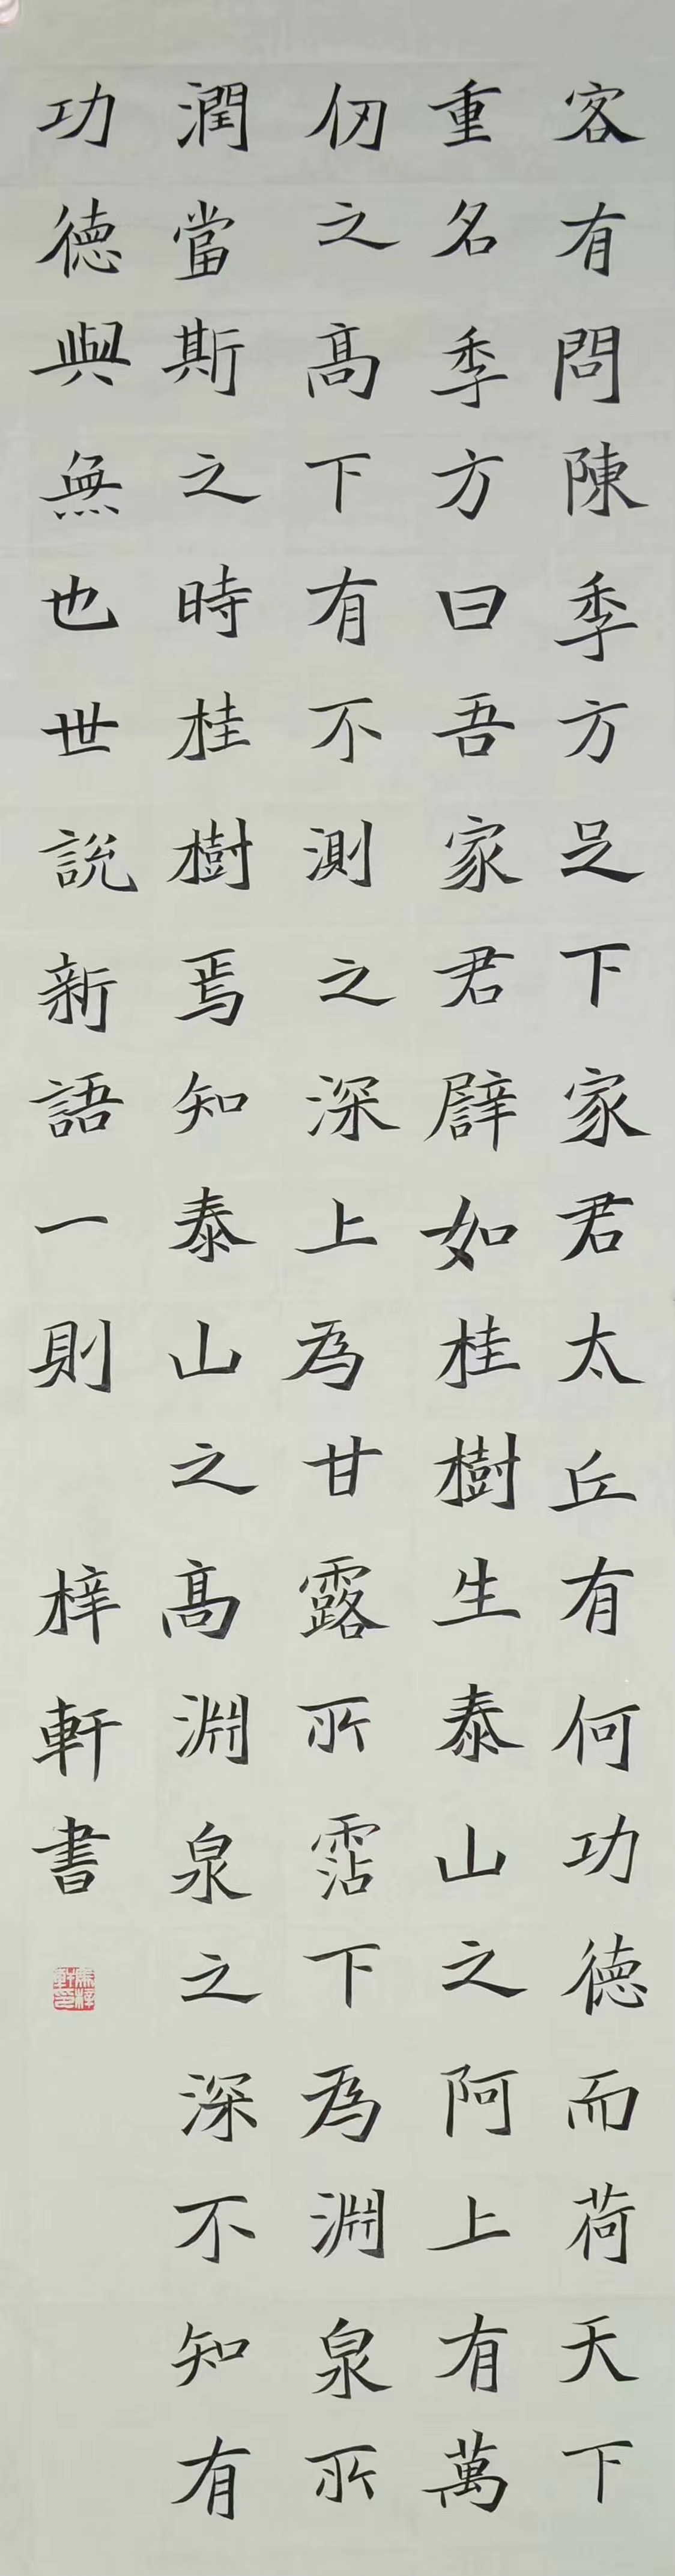 客有問陳季方足下家君太丘有何功德而荷天下
重名季方曰吾家君譬如桂樹生泰山之阿上有萬
仞之高下有不測之深上為甘露所霑下為淵泉所
潤當斯之時桂樹焉知泰山之高淵泉之深不知有
功德與無也世說新語一則 梓軒書